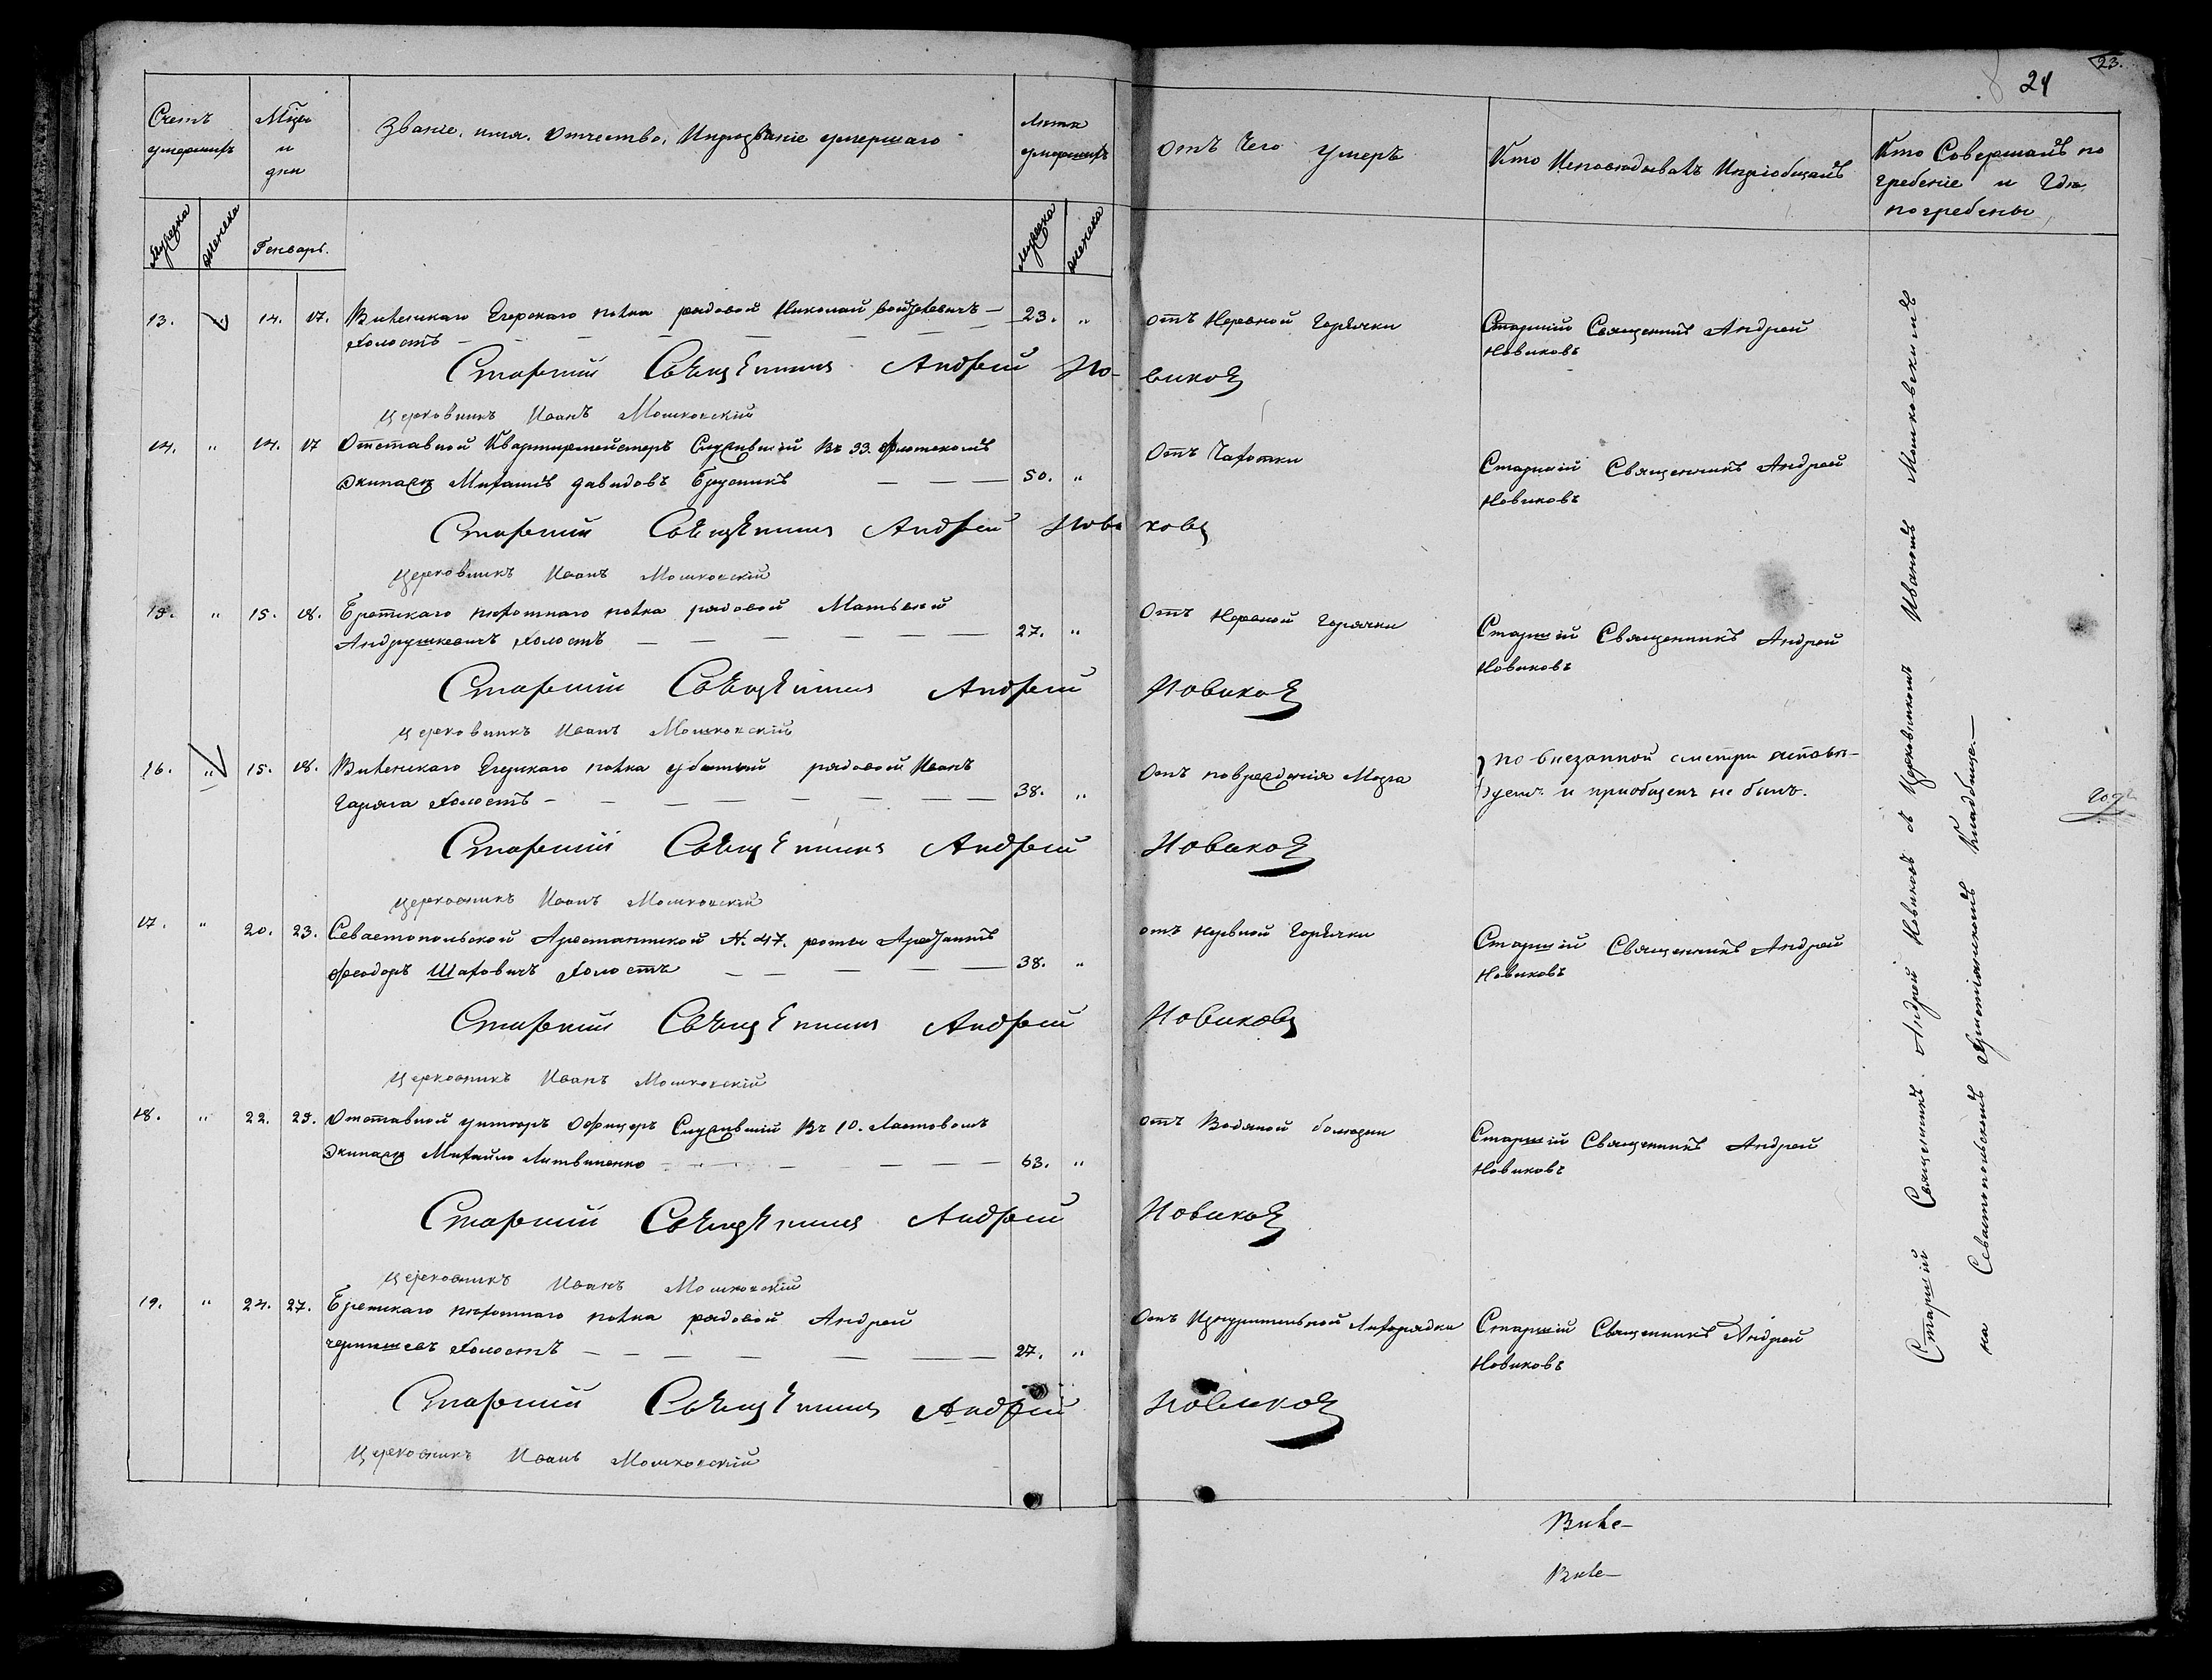 23.
24
Счетъ умершихъ
Мѣсяц и дни
Званіе, имя, Отчество, Ипрозваніе умершаго
Лета умершихъ
Отъ Чего умеръ
Кто Исповѣдывалъ Ипріобщалъ
Кто Совершалъ погребеніе и Гдѣ погребены
Мужска
женска
Генварь.
мужска
женска
13. " 14. 17. Виленскаго Егерскаго полка рядовой Николай Войцеховичъ — 23. " отъ Нервной Горячки Старшій Священникъ Андрей
Холостъ — Новиковъ
Старшій Священникъ Андрей Новиковъ
Церковникъ Иванъ Мошковскій
14. " 14. 17 Отставной Квартирмейстеръ Служившій Въ 33. Флотскомъ Отъ Чахотки Старшій Священникъ Андрей
Экипаже Михаилъ Давидовъ — 50. " Новиковъ
Старшій Священникъ Андрей Новиковъ
Церковникъ Иванъ Мошковскій
15. " 15. 18. Брестскаго пехотнаго полка рядовой Матвей Отъ Нервной Горячки Старшій Священникъ Андрей
Андрушкевичъ Холостъ — 27. " Новиковъ
Старшій Священникъ Андрей Новиковъ
Церковникъ Иванъ Мошковскій
16. " 15. 18. Виленскаго Егерскаго полка убитый рядовой Иванъ Отъ повреждения Мозга по внезапной смерти исповѣ-
Гаряга Холостъ — 38. " дуемъ и приобщенъ не былъ.
Старшій Священникъ Андрей Новиковъ
Церковникъ Иванъ Мошковскій
17. " 20. 23. Севастопольской Арестантской № 47. роты Арестантъ отъ нервной Горячки Старшій Священникъ Андрей
Феодоръ Шаховичъ Холостъ — 38. " Новиковъ
Старшій Священникъ Андрей Новиковъ
Церковникъ Иванъ Мошковскій
18. " 22. 25. Отставной унтеръ Офицеръ Служившій Въ 10. Ластовомъ отъ Водяной болезни Старшій Священникъ Андрей
Экипаже Михайло Литвиненко — 63. " Новиковъ
Старшій Священникъ Андрей Новиковъ
Церковникъ Иванъ Мошковскій
19. " 24. 27. Брестскаго пехотнаго полка рядовой Андрей Отъ Изнурительной Лихорадки Старшій Священникъ Андрей
Чернышевъ Холостъ — 27. " Новиковъ
Старшій Священникъ Андрей Новиковъ
Церковникъ Иванъ Мошковскій
Старшій Священникъ Андрей Новиковъ съ Церковникомъ Иваномъ Мошковскимъ
на Севастопольскомъ Христіянскомъ Кладбище —
Виле—
Виле—